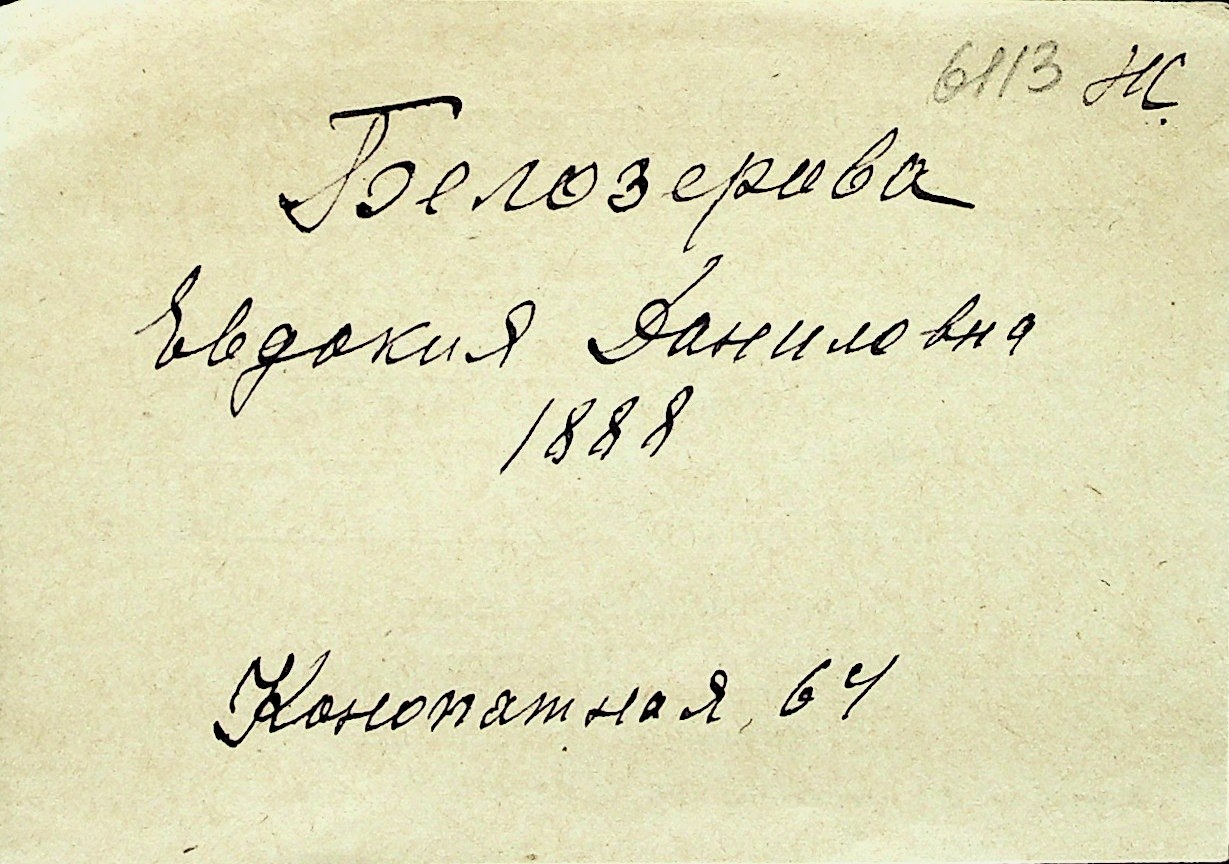 6113 Ж.
Белозерова
Евдокия Даниловна
1888
Конопатная 64